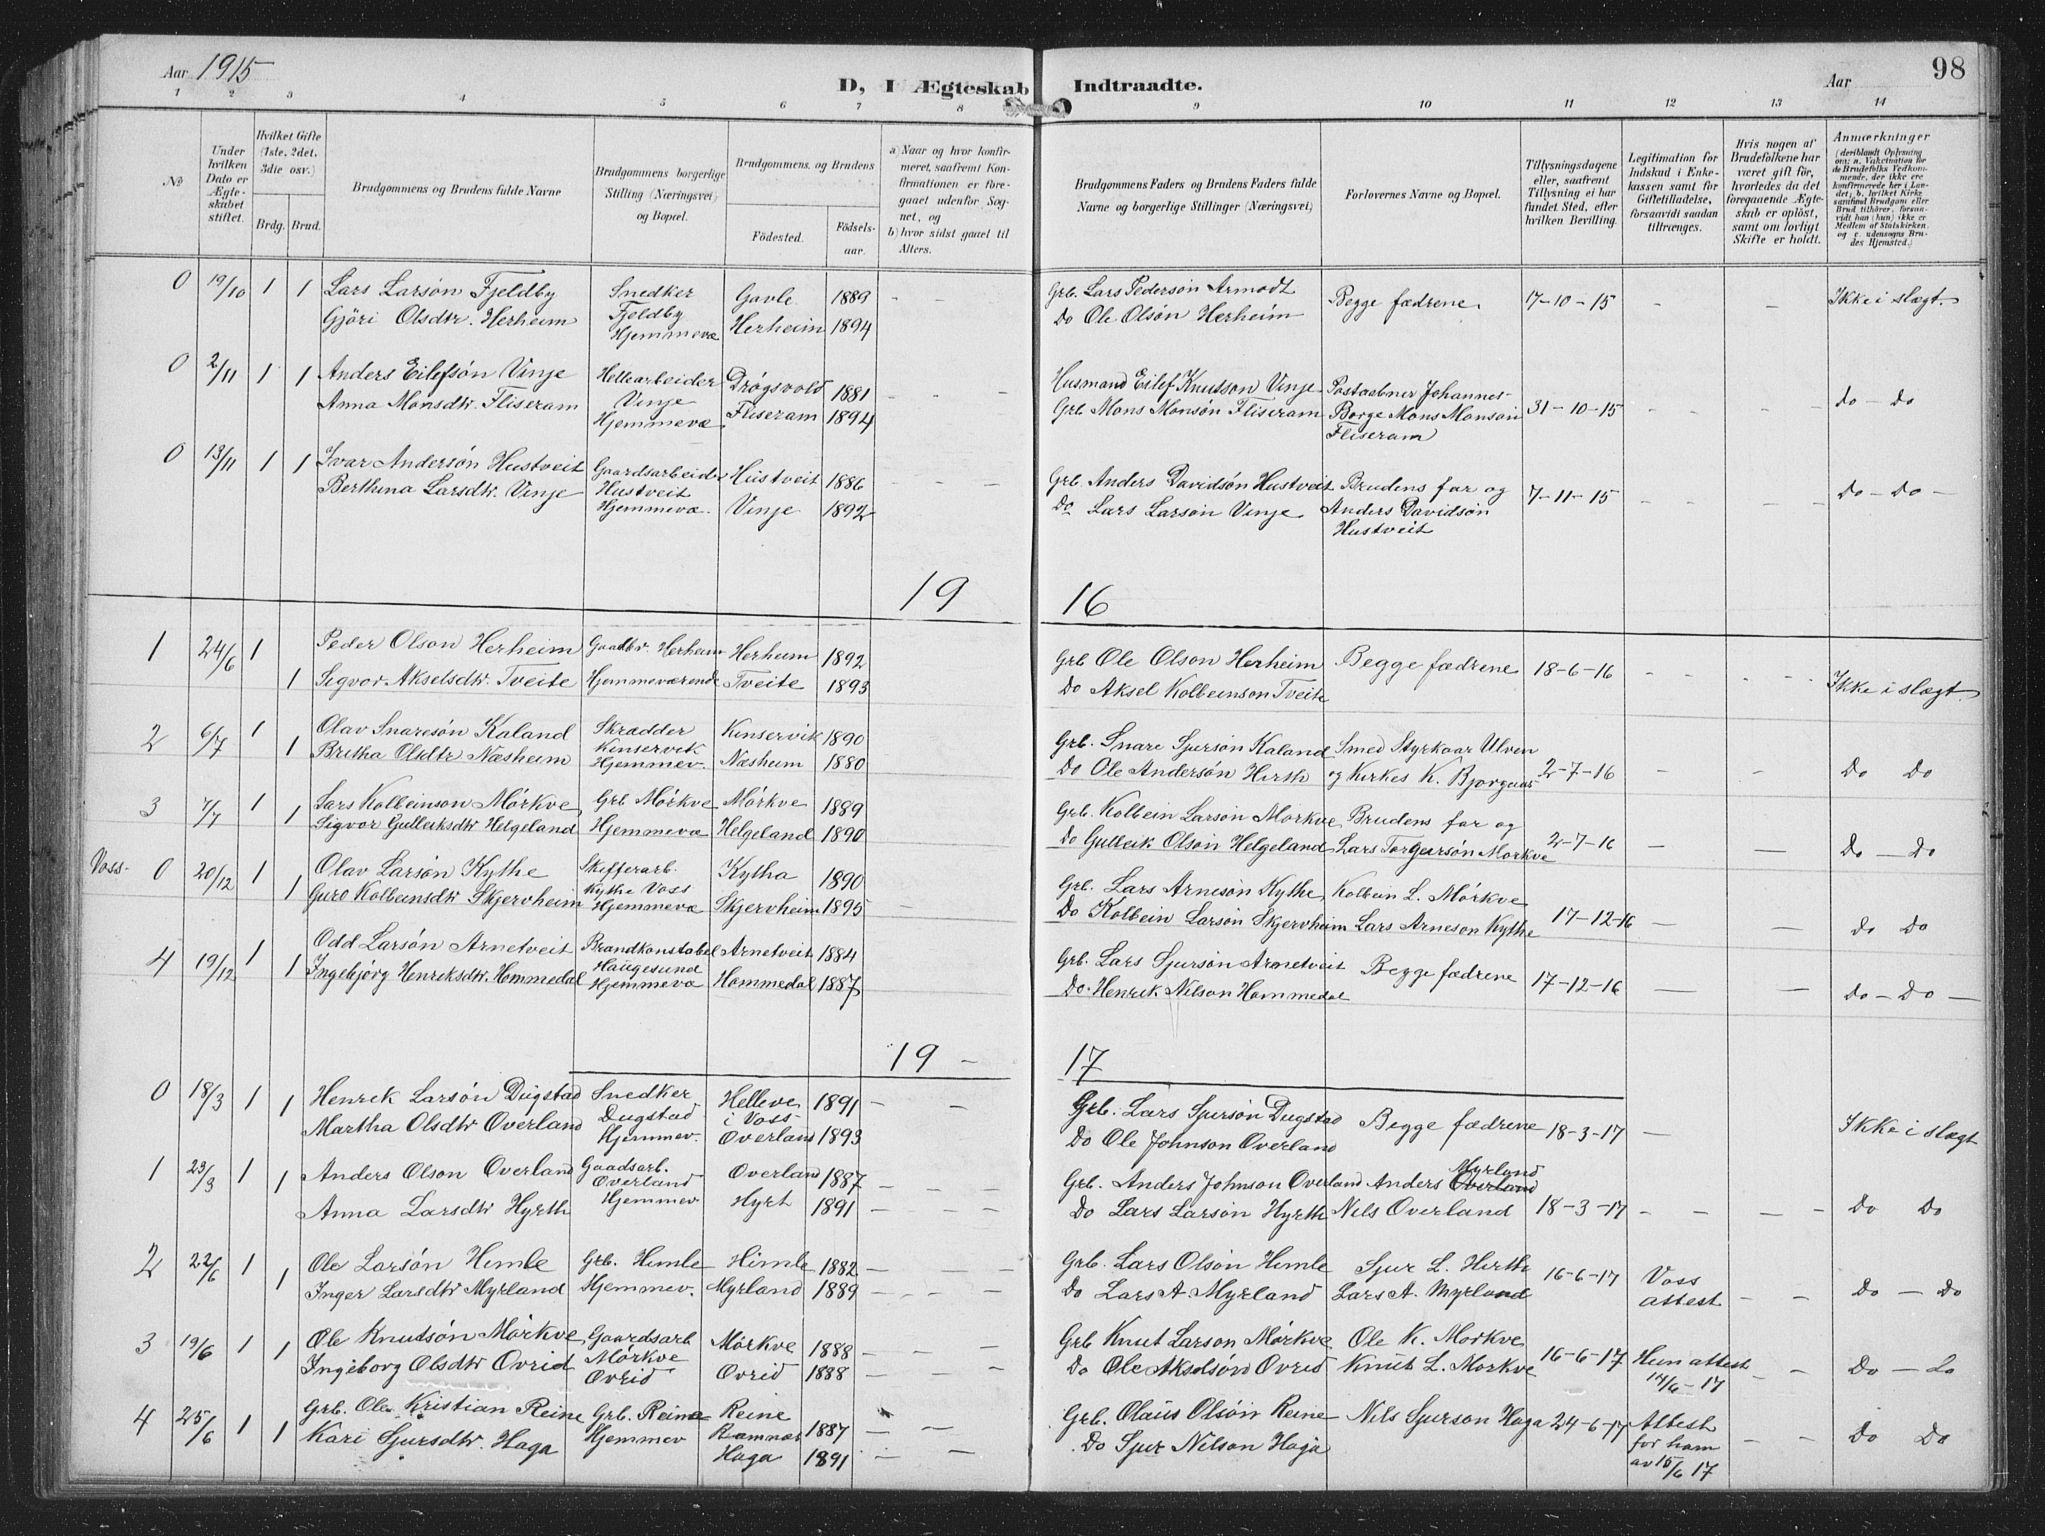 Aar 1915
D, I Ægteskab Indtraadte.
Aar
98
1 2 3 4 5 6 7 8 9 10 11 12 13 14
No
Under hvilken Dato er Ægteskabet stiftet.
Hvilket Gifte (1ste, 2det, 3die osv.)
Brdg. Brud.
Brudgommens og Brudens fulde Navne
Brudgommens borgerlige Stilling (Næringsvei) og Bopæl.
Brudgommens og Brudens
Fødested.
Fødselsaar.
a) Naar og hvor konfirmeret, saafremt Konfirmationen er foregaaet udenfor Sognet, og
b) hvor sidst gaaet til Alters.
Brudgommens Faders og Brudens Faders fulde Navne og borgerlige Stillinger (Næringsvei)
Forlovernes Navne og Bopæl.
Tillysningsdagene eller, saafremt Tillysning ei har fundet Sted, efter hvilken Bevilling.
Legitimation for Indskud i Enkekassen samt for Giftetilladelse, forsaavidt saadan tiltrænges.
Hvis nogen af Brudefolkene har været gift før, hvorledes da det foregaaende Ægteskab er opløst, samt om lovligt Skifte er holdt.
Anmærkninger
(deriblandt Oplysning om: a. Vakcination for de Brudefolks Vedkommende, der ikke ere konfirmerede her i Landet; b. hvilket Kirkesamfund Brudgom eller Brud tilhører, forsaavidt han (hun) ikke er Medlem af Statskirken, og c. udensogns Brudes Hjemsted.)
0 19/10 1 1 Lars Larsøn Fjeldby Snedker Gavle 1889 - - Grb. Lars Pedersøn Armodt Begge fædrene 17-10-15 - - Ikke i slægt.
Gjöri Olsdtr. Herheim Fjeldby Hjemmevæ Herheim 1894 Do Ole Olsøn Herheim
0 2/11 1 1 Anders Eilefsøn Vinje Hellearbeider Drøgsvold 1881 Husmand Eilef Knutsøn Vinje Postaabner Johannes
Anna Monsdtr. Fliseram Vinje Hjemmevæ. Fliseram 1894 - - - Grb. Mons Monsøn Fliseram Borge Mons Monsøn Fliseram 31-10-15 - - - Do - Do
0 13/11 1 1 Ivar Andersøn Hustveit Gaardsarbeider Hustveit 1886 - - - Grb. Anders Davidsøn Hustveit Brudens far og 7-11-15 - - - Do - Do -
Berthina Larsdtr. Vinje Hustveit Hjemmevæ. Vinje 1892 Do Lars Larsøn Vinje Anders Davidsøn Hustveit
19 16
1 24/6 1 Peder Olson Herheim Gaardbr. Herheim Herheim 1892 Grb Ole Olson Herheim Begge fædrene 18-6-16 - - - -
1 Sigvor Akselsdtr. Tveite Hjemmeværende Tveite 1893 Do Aksel Kolbeinson Tveite Ikke i slægt
2 6/7 1 Olav Snaresøn Kaland Skrædder Kinservik Kinservik 1890 Grb. Snare Sjursøn Kaland Smed Styrkaar Ulven
1 Britha Olsdtr Næsheim Hjemmev. Næsheim 1880 Do Ole Andersøn Hirth og Kirkes K. Bjorgaas 2-7-16 - - Do Do
3 7/7 1 Lars Kolbeinson Mørkve Grb Mørkve Mørkve 1889 Grb. Kolbein Larsøn Mørkve Brudens far og
1 Sigvor Gulleiksdtr Helgeland Hjemmevæ Helgeland 1890 Do Gulleik Olsøn Helgeland Lars Torgeirsøn Mørkve 2-7-16 - - Do - Do
Voss- 0 20/12 1 Olav Larsøn Kythe Skifferarb. Kythe Voss Kytha 1890 Grb. Lars Arnesøn Kythe Kolbein L. Mørkve
1 Guro Kolbeinsdtr Skjervheim Hjemmevæ Skjervheim 1895 - Do Kolbein Larsøn Skjervheim Lars Arneson Kythe 17-12-16 - - Do Do
4 19/12 1 Odd Larsøn Arnetveit Brandkonstabel Haugesund Arnetveit 1884 Grb. Lars Sjursøn Arnetveit Begge fædrene 17-12-16
1 Ingebjørg Henriksdtr. Hommedal Hjemmevæ Hommedal 1887 Do. Henrik Nilson Hommedal - - Do - Do -
19 - 17
0 18/3 1 1 Henrik Larsøn Dugstad Snedker Dugstad Helleve i Voss 1891 - - Grb. Lars Sjursøn Dugstad Begge fædrene 18-3-17 - Ikke i slægt
Martha Olsdtr Overland Hjemmev. Overland 1893 Do Ole Johnson Overland
1 23/3 1 1 Anders Olson Overland Gaadsarb. Overland Overland 1887 - - - Grb. Anders Johnson Overland Anders Myrland
Anna Larsdtr Hyrth Hjemmev Hyrt 1891 - - - Do Lars Larsøn Hyrth Nils Overland 18-3-17 - - - - Do Do
2 22/6 1 1 Ole Larsøn Himle Grb. Himle Himle 1882 - - Grb. Lars Olsøn Himle Sjur L. Hirth 16-6-17 Voss attest
Inger Larsdtr Myrland Hjemmev. Myrland 1889 - - - Do Lars A. Myrland Lars A. Myrland - - Do - Do
3 19/6 1 1 Ole Knutsøn Mørkve Gaardsarb Mørkve Mørkve 1888 - - Grb Knut Larson Mørkve Ole K. Mørkve
Ingeborg Olsdtr Ovrid Ovrid Ovrid 1888 - - Do Ole Akselsøn Ovrid Knut L. Mørkve 16-6-17 Hun attest 14/6-17 - - Do - Do
4 25/6 1 1 Grb. Ole Kristian Reine Grb. Reine Reine Ramnæs 1887 - - Grb. Olaus Olsøn Reine Nils Sjurson Haga 24-6-17 Attest for ham av 15/6 17
Kari Sjursdtr. Haga Hjemmev Haga 1891 - - Do Sjur Nilson Haga - - Do Do